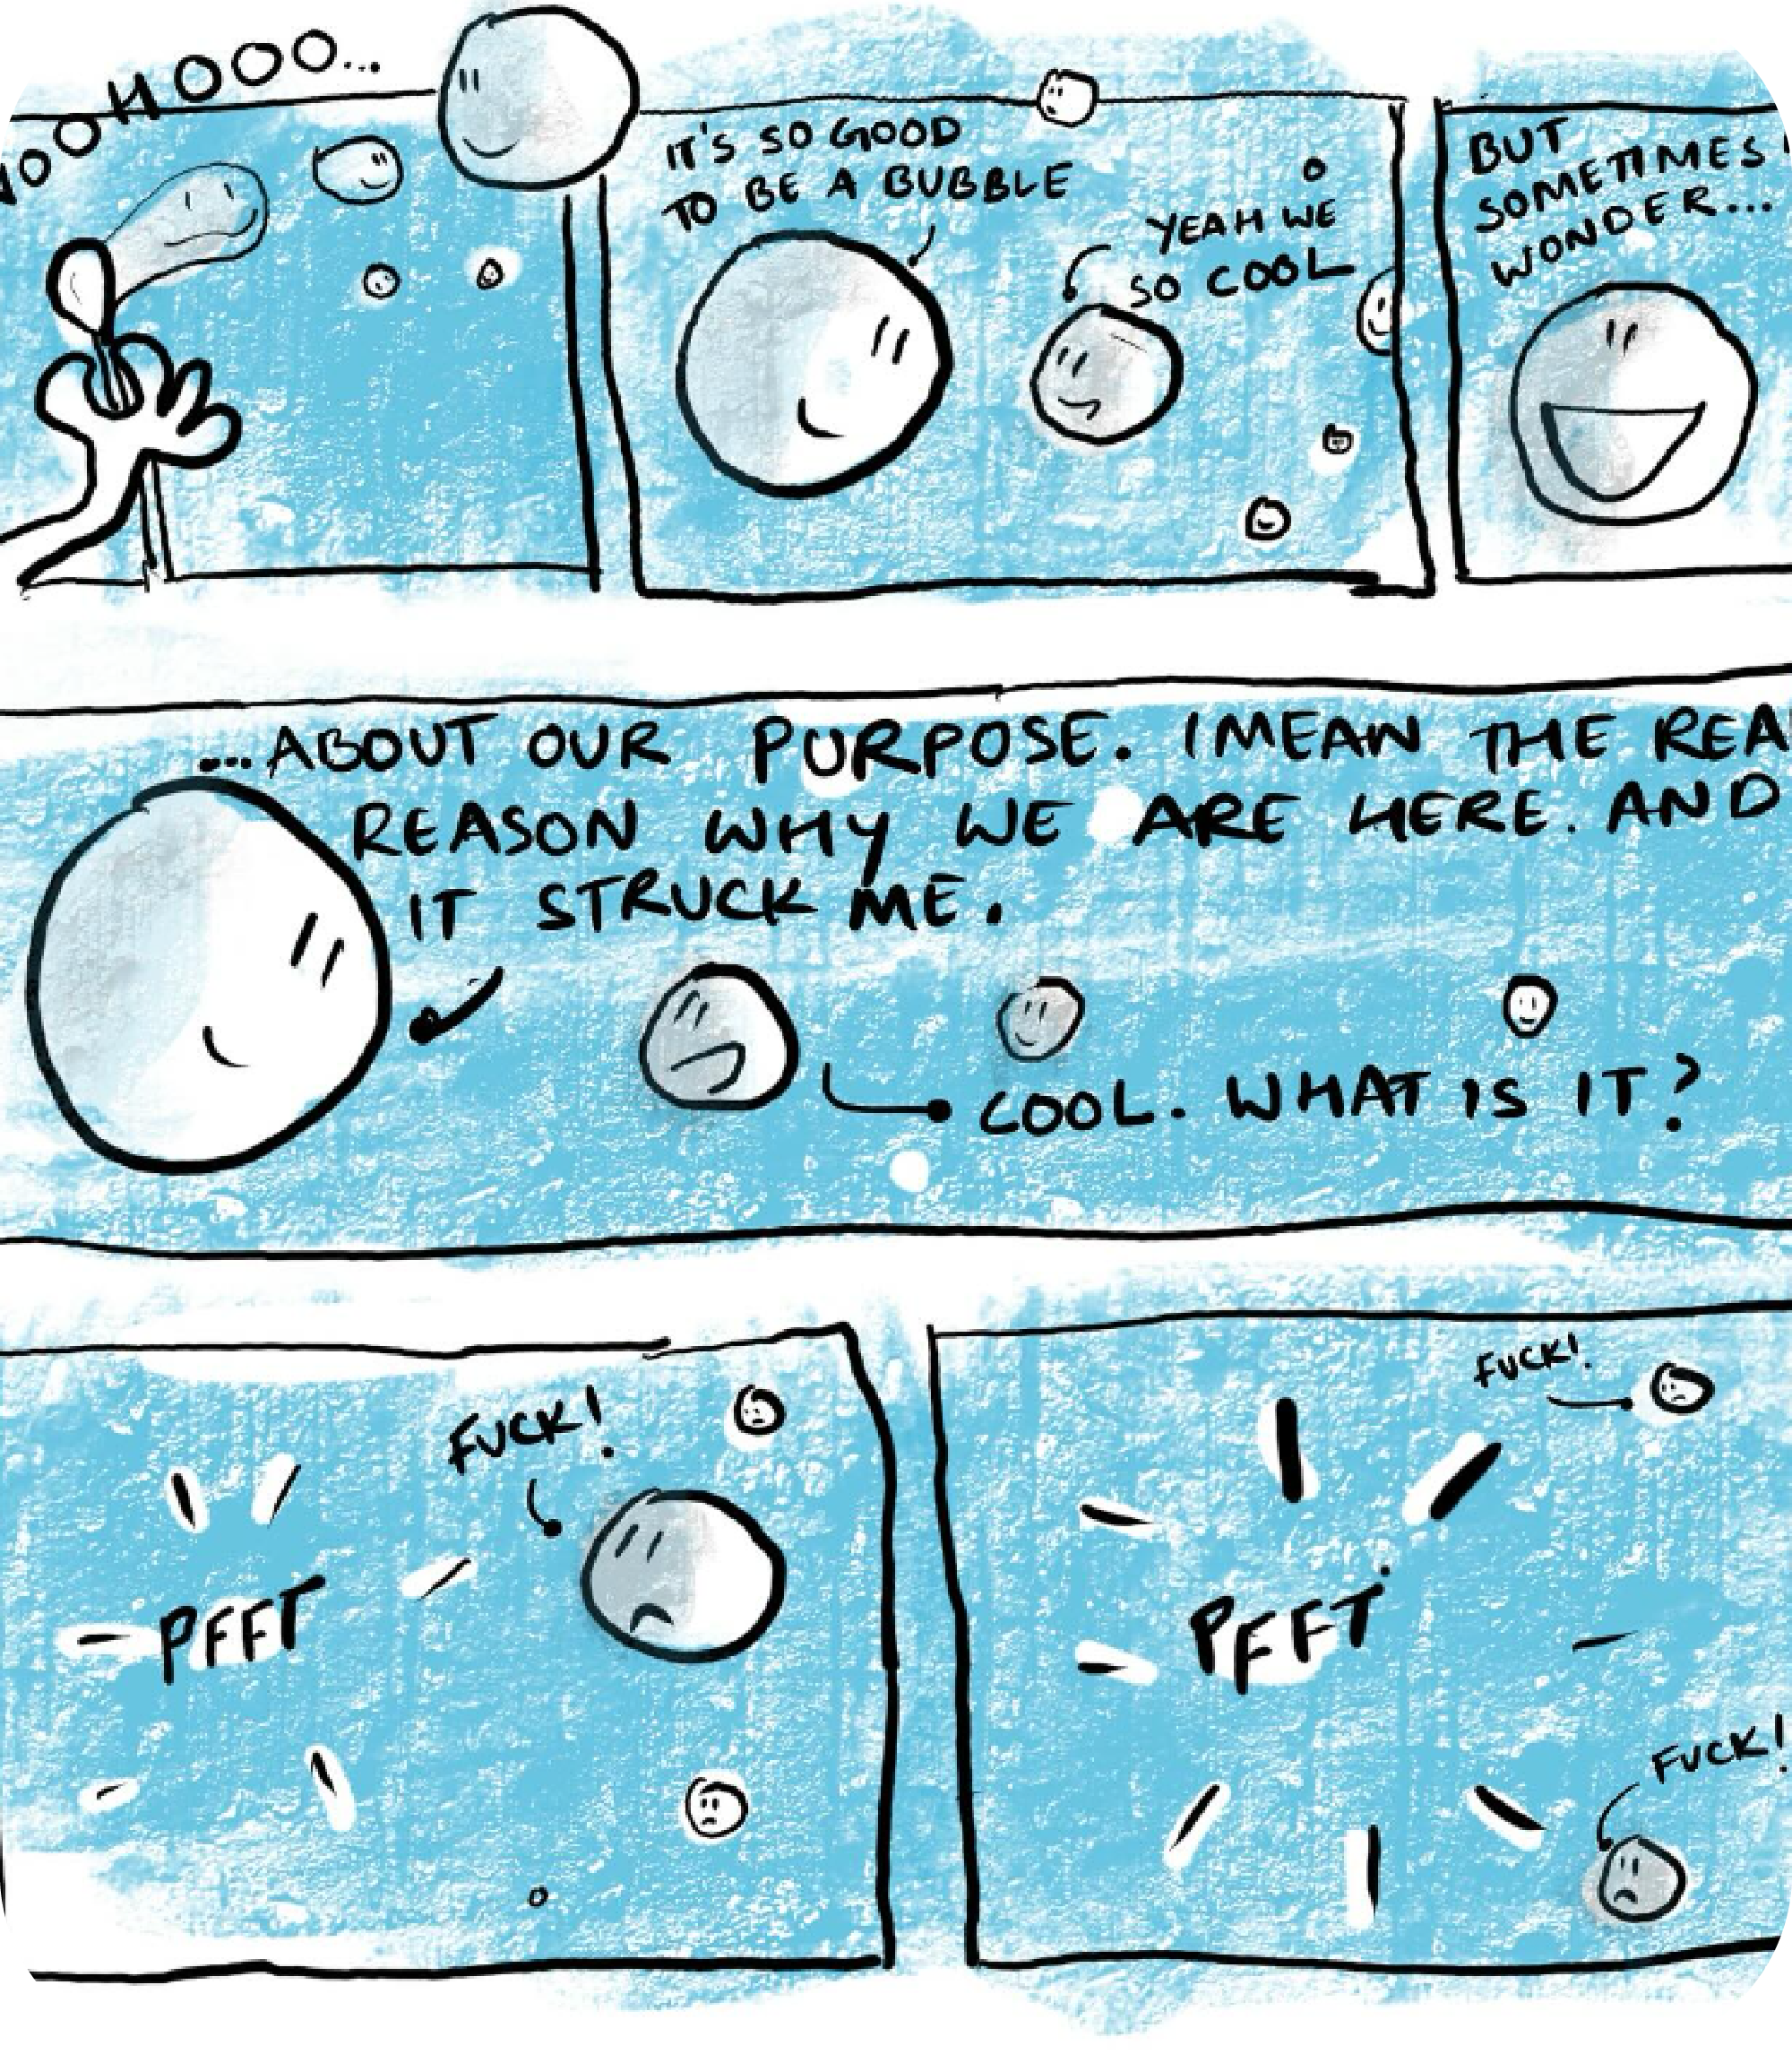 HOOO...
IT'S SO GOOD
TO BE A BUBBLE
YEAH WE
SO COOL
BUT
SOMETIMES I
WONDER...
...ABOUT OUR PURPOSE. I MEAN THE REA
REASON WHY WE ARE HERE. AND
IT STRUCK ME.
COOL. WHAT IS IT?
FUCK!
PFFT
FUCK!
PFFT
FUCK!